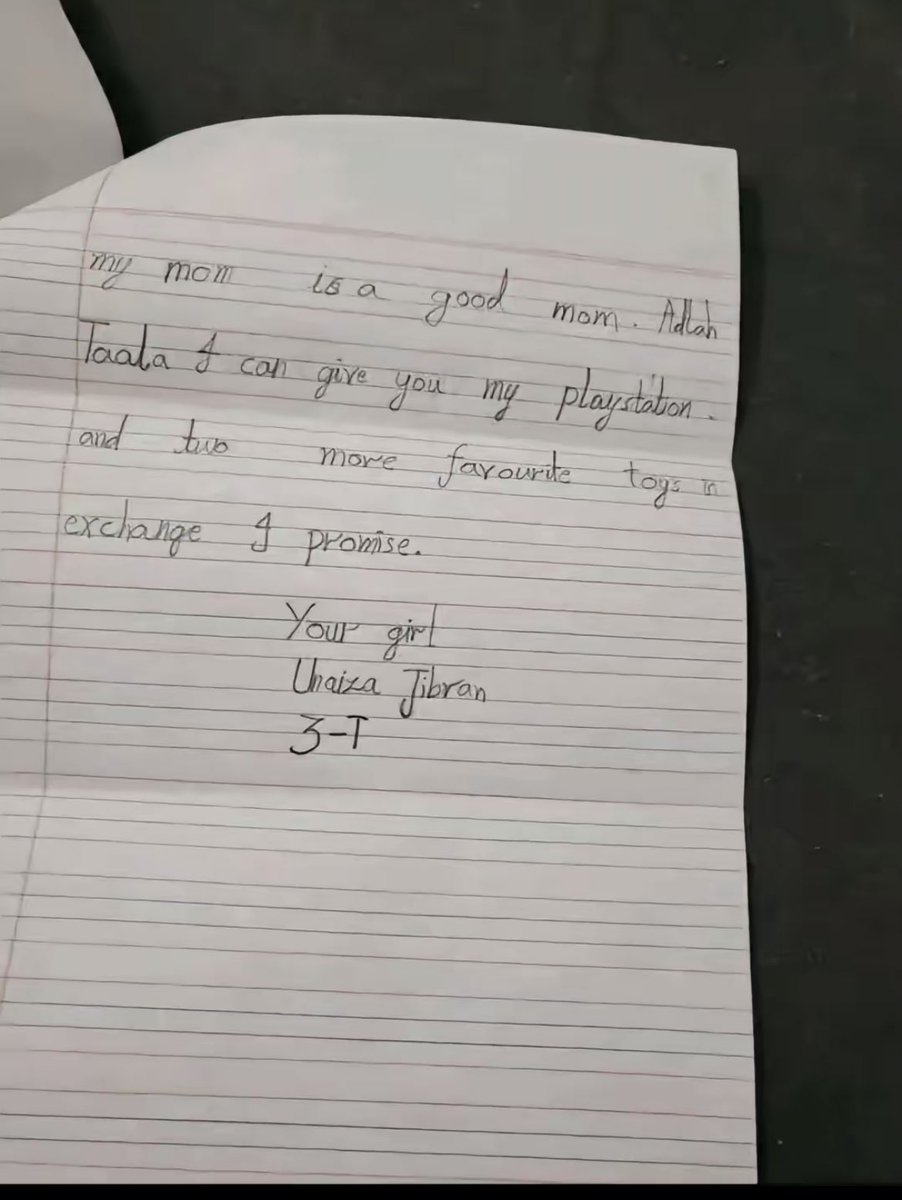 my mom is a good mom. Adlah
Taala I can give you my playstation.
and two more favourite toys in
exchange I promise.
Your girl
Unaiza Jibran
3-T